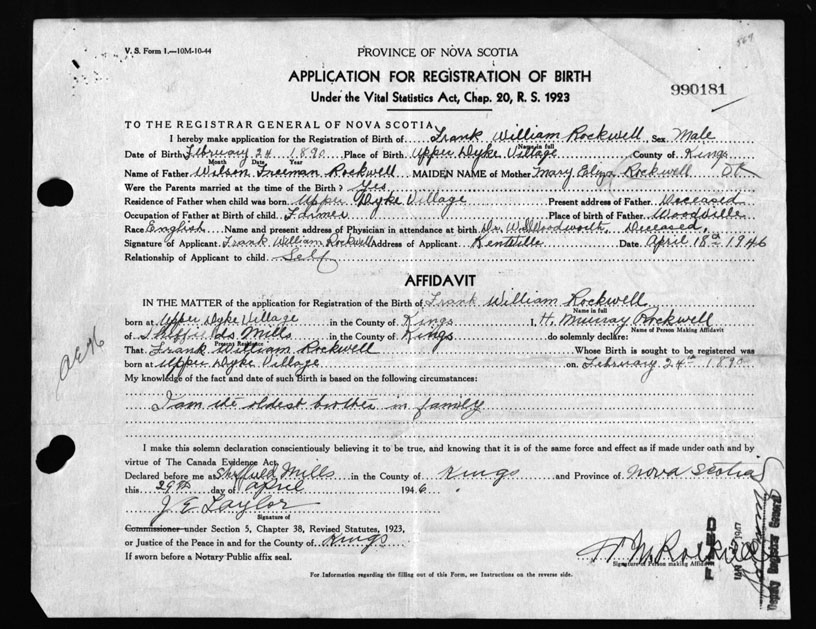 V. S. Form 1.—10M-10-44
PROVINCE OF NOVA SCOTIA
569
APPLICATION FOR REGISTRATION OF BIRTH
990181
Under the Vital Statistics Act, Chap. 20, R. S. 1923
TO THE REGISTRAR GENERAL OF NOVA SCOTIA
I hereby make application for the Registration of Birth of Frank William Rockwell Sex Male
Name in full
Date of Birth February 24 1890 Place of Birth Upper Dyke Village County of Kings
Month Date Year
Name of Father Wilson Freeman Rockwell MAIDEN NAME of Mother Mary Eliza Rockwell OK
Were the Parents married at the time of the Birth? Yes
Residence of Father when child was born Upper Dyke Village Present address of Father Deceased
Occupation of Father at Birth of child Farmer Place of birth of Father Woodville
Race English Name and present address of Physician in attendance at birth Dr. Woodworth, Deceased.
Signature of Applicant Frank William Rockwell Address of Applicant Kentville Date April 18th 1946
Relationship of Applicant to child Self
AFFIDAVIT
IN THE MATTER of the application for Registration of the Birth of Frank William Rockwell
Name in full
born at Upper Dyke Village in the County of Kings I, H. Murray Rockwell
Name of Person Making Affidavit
of Sheffields Mills in the County of Kings do solemnly declare:
Present Residence
That Frank William Rockwell Whose Birth is sought to be registered was
born at Upper Dyke Village on February 24th 1890
My knowledge of the fact and date of such Birth is based on the following circumstances:
I am the oldest brother in family
I make this solemn declaration conscientiously believing it to be true, and knowing that it is of the same force and effect as if made under oath and by
virtue of The Canada Evidence Act.
Declared before me at Sheffield Mills in the County of Kings and Province of Nova Scotia
this 29th day of April 1946
J. E. Taylor
Signature of
Commissioner under Section 5, Chapter 38, Revised Statutes, 1923,
or Justice of the Peace in and for the County of Kings
If sworn before a Notary Public affix seal.
H M Rockwell
Signature of Person making Affidavit
FILED
Deputy Registrar General
For Information regarding the filling out of this Form, see Instructions on the reverse side.